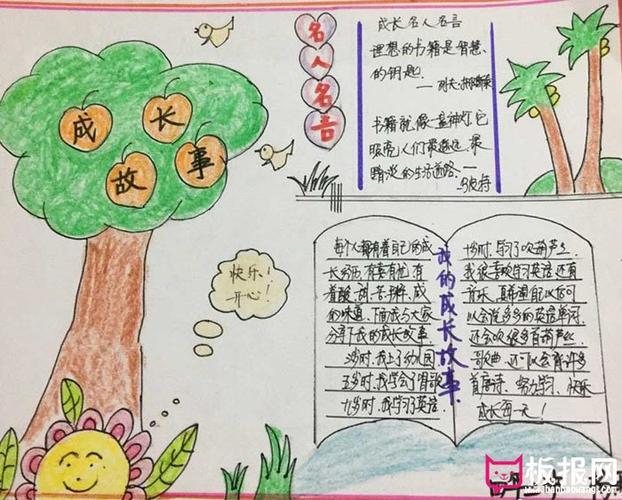 成长
故事
名人名言
成长名人名言
理想的书籍是智慧
的钥匙
书籍就像一盏神灯，它
照亮人们最遥远、最
暗淡的生活道路
快乐！
开心！
我的成长故事
每个人都有着自己的成
长经历，有喜有忧，有
着酸、甜、苦、辣、咸
的味道，下面我与大家
分享下我的成长故事。
3岁时，我上了幼儿园
五岁时，我学会了唱歌
九岁时，我学习了英语
10岁时，学习了吹葫芦丝。
我很喜欢学习英语还有
音乐，真希望自己以后可
以会说多多的英语单词，
还会吹很多首葫芦丝
歌曲，还可以会背许多
首唐诗，努力学习，快乐
成长每一天！
板报网